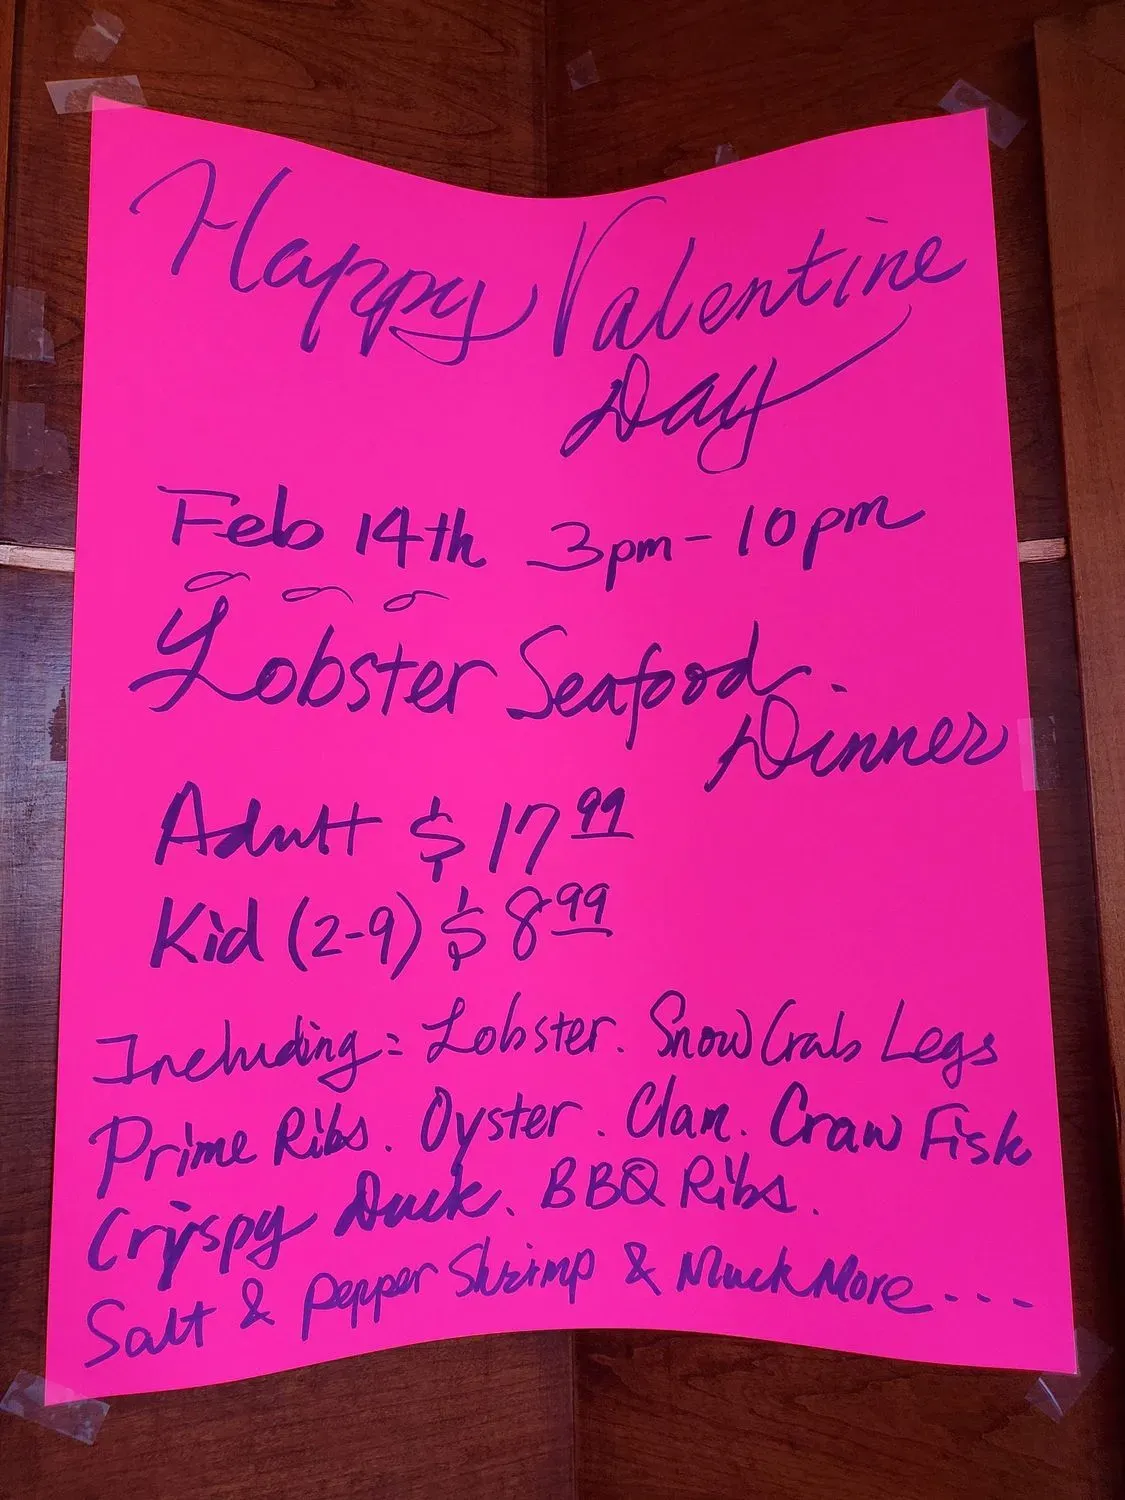 Happy Valentine
Day
Feb 14th 3pm - 10pm
Lobster Seafood
Dinner
Adult $17.99
Kid (2-9) $8.99
Including: Lobster. Snow Crab Legs
Prime Ribs. Oyster. Clam. Craw Fish
Crispy Duck. BBQ Ribs.
Salt & pepper Shrimp & Much More ---